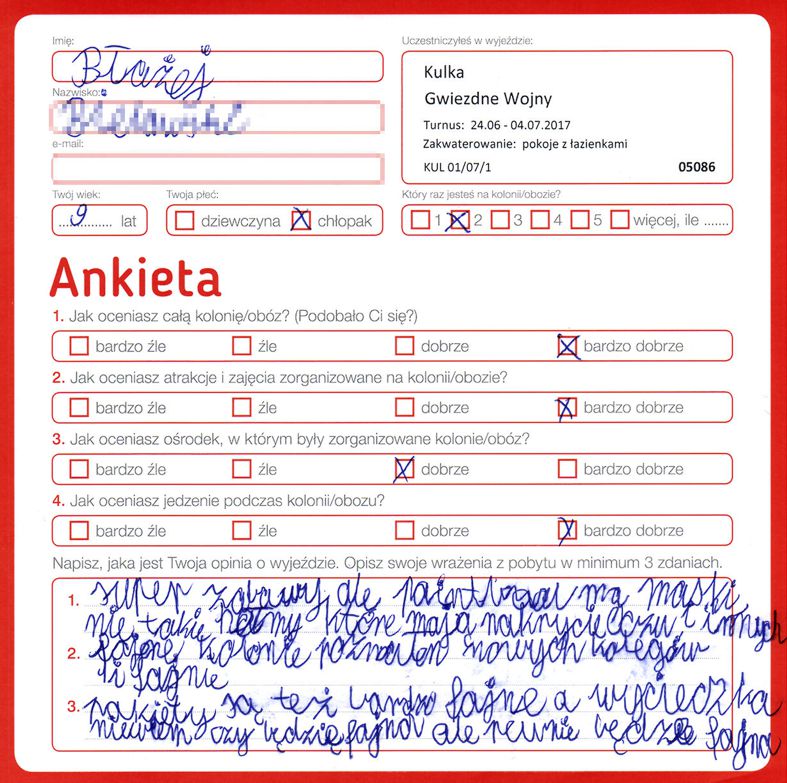 Imię:
Błażej
Nazwisko:
e-mail:
Twój wiek:
9 lat
Twoja płeć:
dziewczyna chłopak
Uczestniczyłeś w wyjeździe:
Kulka
Gwiezdne Wojny
Turnus: 24.06 - 04.07.2017
Zakwaterowanie: pokoje z łazienkami
KUL 01/07/1 05086
Który raz jesteś na kolonii/obozie?
1 2 3 4 5 więcej, ile .......
Ankieta
1. Jak oceniasz całą kolonię/obóz? (Podobało Ci się?)
bardzo źle źle dobrze bardzo dobrze
2. Jak oceniasz atrakcje i zajęcia zorganizowane na kolonii/obozie?
bardzo źle źle dobrze bardzo dobrze
3. Jak oceniasz ośrodek, w którym były zorganizowane kolonie/obóz?
bardzo źle źle dobrze bardzo dobrze
4. Jak oceniasz jedzenie podczas kolonii/obozu?
bardzo źle źle dobrze bardzo dobrze
Napisz, jaka jest Twoja opinia o wyjeździe. Opisz swoje wrażenia z pobytu w minimum 3 zdaniach.
1. super zabawy ale paintbaal ma maski
nie takie które mają nakrycie oczu i innych
2. fajne kolonie nowych kolegów
i fajnie
3. pakiety są też bardzo fajne a wycieczka
niewiem czy będzie fajna ale pewnie będzie fajna